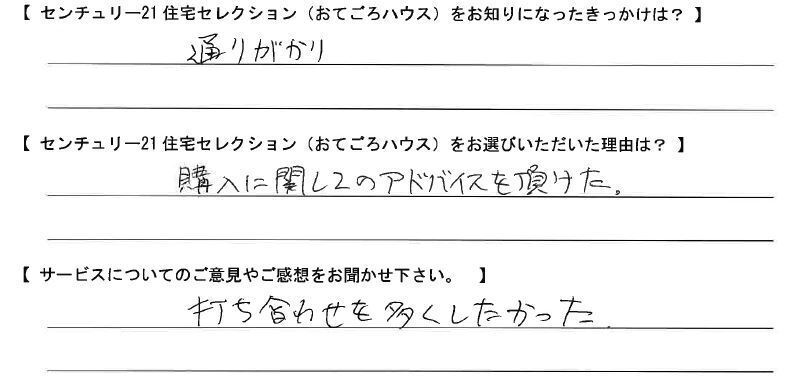 【 センチュリー21 住宅セレクション（おてごろハウス）をお知りになったきっかけは？ 】
通りがかり
【 センチュリー21 住宅セレクション（おてごろハウス）をお選びいただいた理由は？ 】
購入に関してのアドバイスを頂けた。
【 サービスについてのご意見やご感想をお聞かせ下さい。 】
打ち合わせを多くしたかった.